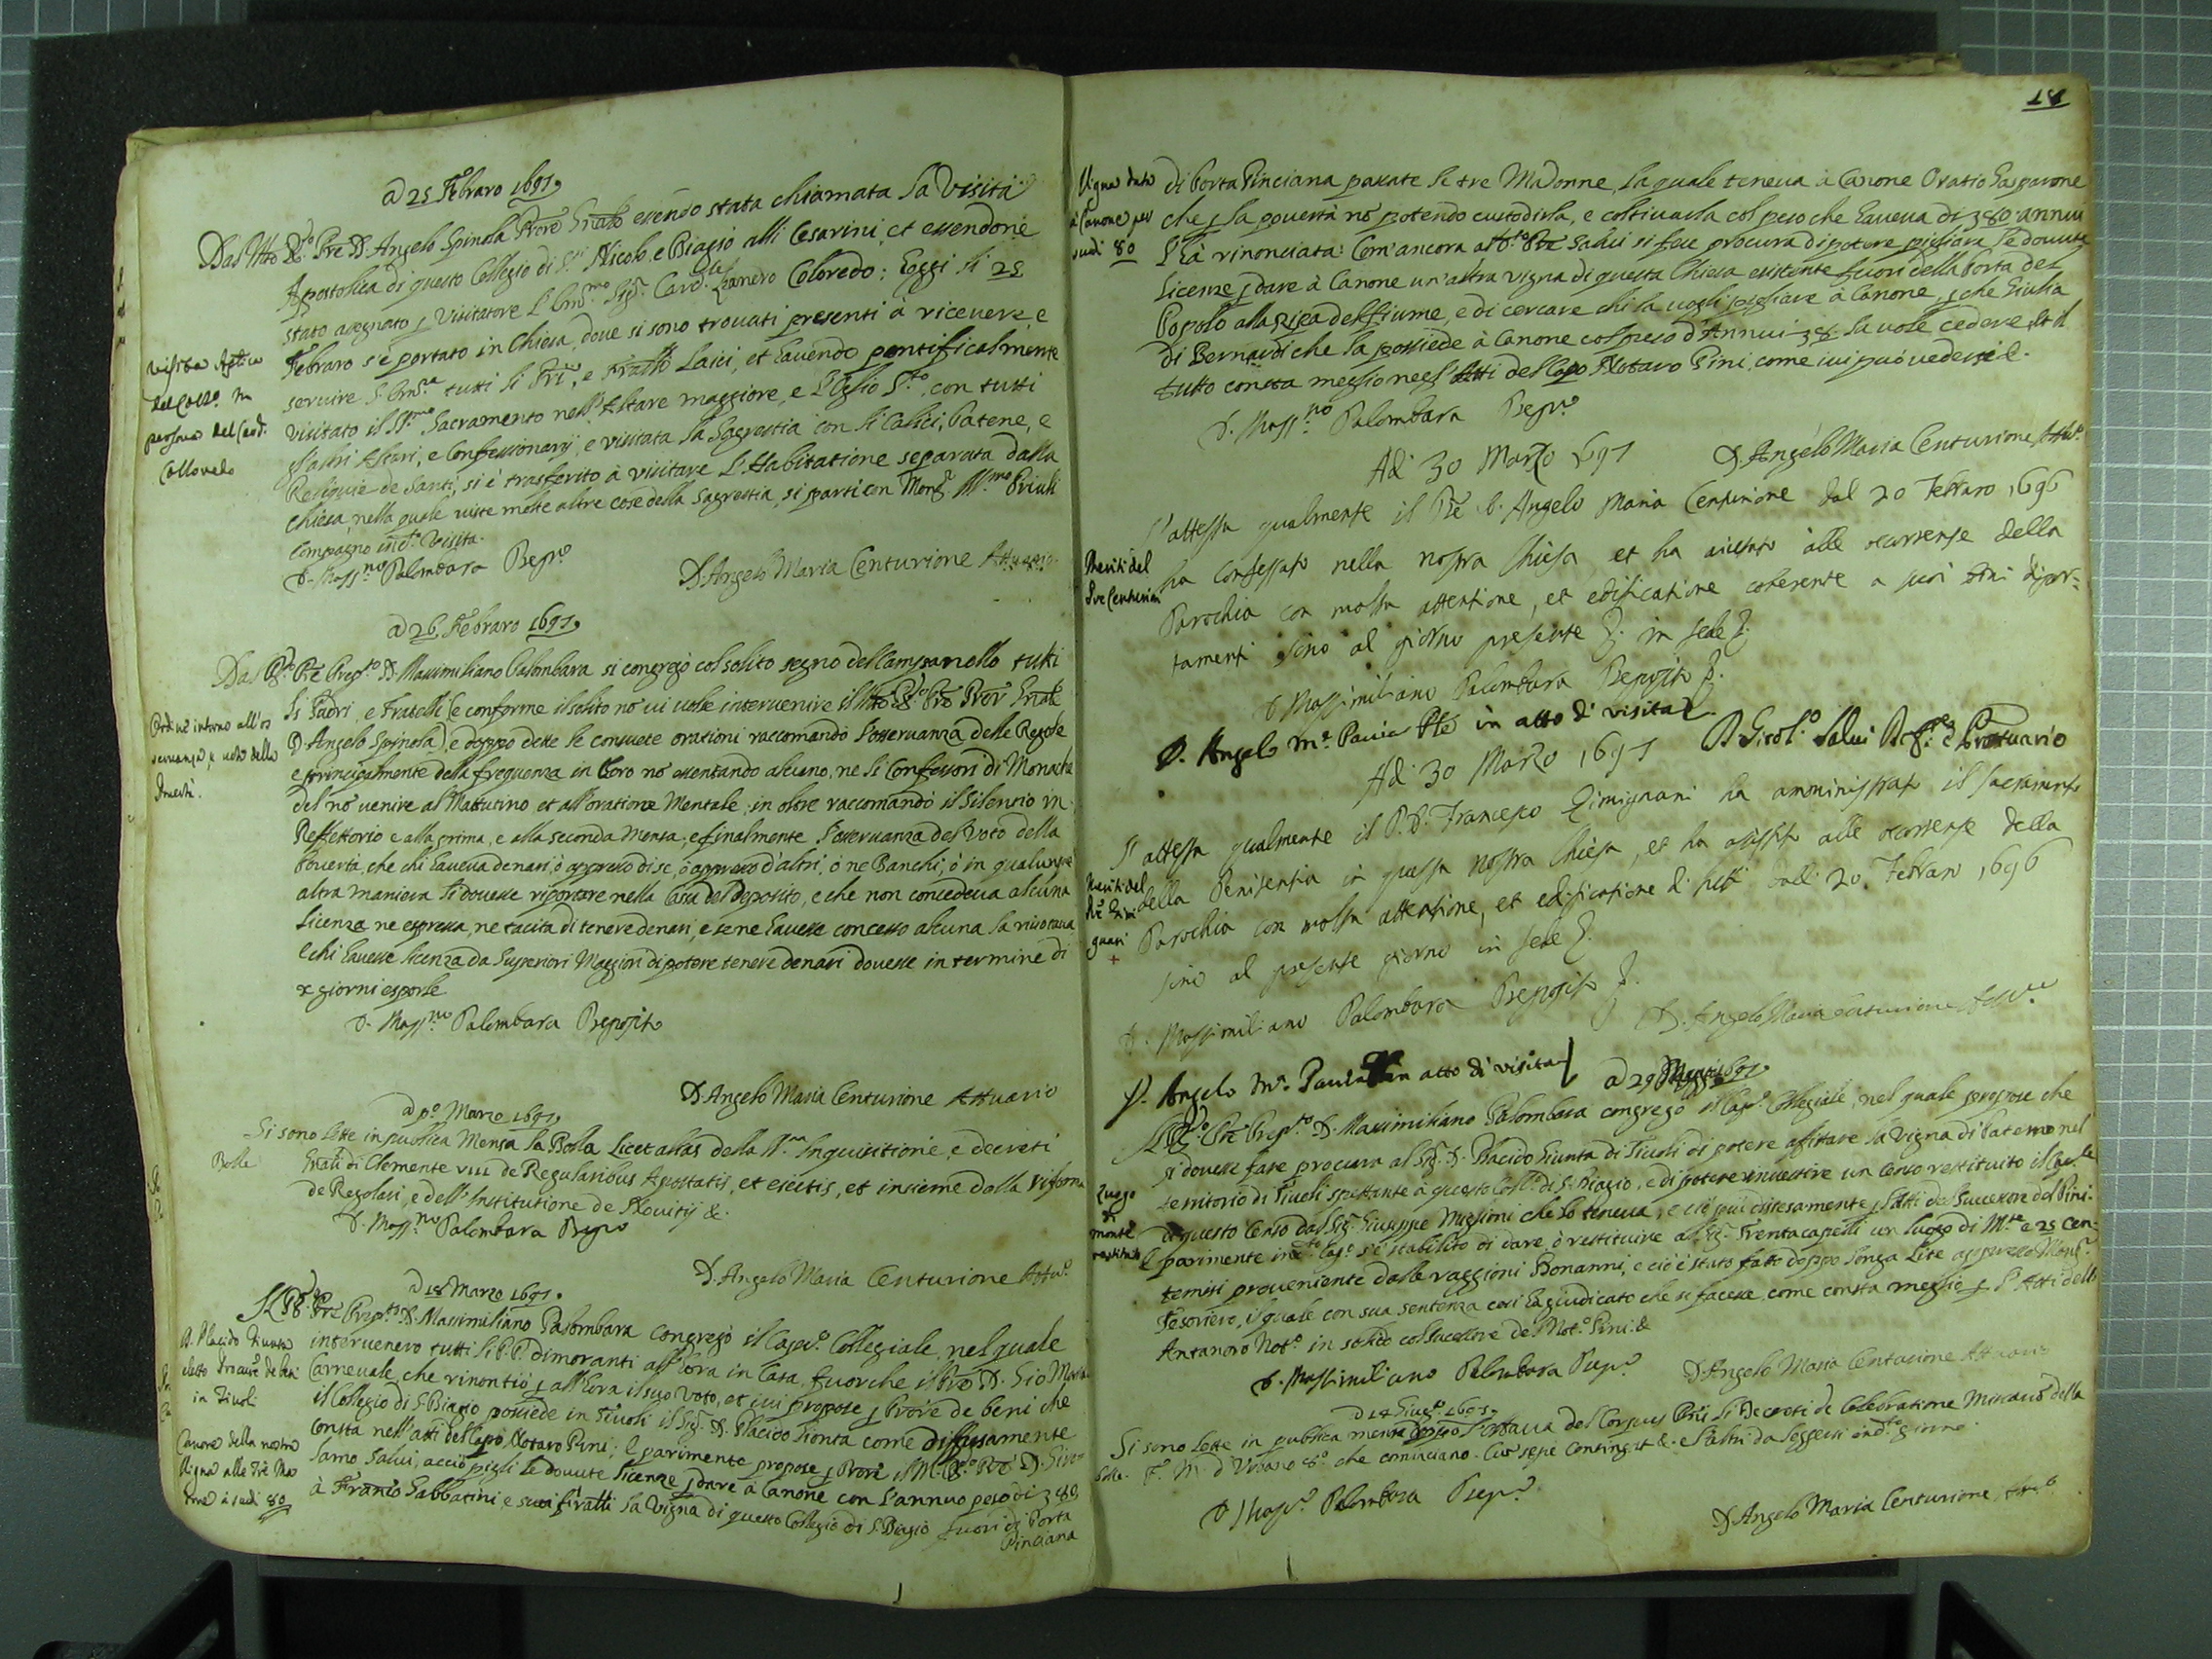 a 25 Febraro 1697
Dal Mto Rdo. Pre D. Angelo Spinola Prore Gnale essendo stata chiamata la Visita
Apostolica di questo Collegio di Sti Nicolo, e Biagio alli Cesarini, et essendone
stato asegnato p Visitatore l'Emmo. Sigr. Card.le Leandro Coloredo: Eoggi li 25
Febraro s'è portato in Chiesa, dove si sono trouati presenti à riceuere, e
seruire S. Emza tutti li Pri, e Fratelli Laici, et hauendo pontificalmente
visitato il SSmo. Sacramento nell'Altare maggiore, e l'Oglio Sto, con tutti
gl'altri Altari, e Confessionarij, e visitata la Sagrestia con li Calici, Patene, e
Reliquie de Santi, si è trasferito à visitare l'Habitatione separata dalla
Chiesa, nella quale viste molte altre cose della Sagrestia, si partì con Monsr. Illmo. Priuli
Compagno in da. Visita.
Visita Aptica
del Collo. in
persona del Card.
Colloredo
D. Massno Palombara Prepto
D. Angelo Maria Centurione Attuario
a 26 Febraro 1697
Dal Rdo. Pre Prepto D. Massimiliano Palombara si congregò col solito segno del Campanello tutti
li Padri, e Fratelli (e conforme il solito nō ui uolse interuenire il Mto Rdo. Pre Pror Gnale
D. Angelo Spinola) e doppo dette le consuete orationi raccomandò l'osseruanza delle Regole
e principalmente della frequenza in Coro nō essentando alcuno, ne li Confessori di Monache
del nō uenire al Mattutino et all'oratione Mentale, in oltre raccomandò il Silentio in
Reffettorio e alla prima, e alla seconda Mensa; e finalmente l'osseruanza del Voto della
Pouertà, che chi haueua denari, ò appresso di se, ò appresso d'altri, ò ne Banchi, ò in qualunque
altra maniera li douesse riportare nella Cassa del Deposito, e che non concedeua alcuna
licenza ne espressa, ne tacita di tenere denari, e se ne hauesse concesso alcuna la riuocaua
e chi hauesse licenza da Superiori Maggiori di potere tenere denari douesse in termine di
x giorni esporle
Ordine intorno all'os
seruanza, e uoto della
Pouertà.
D. Massno Palombara Preposito
D. Angelo Maria Centurione Attuario
a po. Marzo 1697
Si sono lette in publica Mensa la Bolla Licet alias della Sta. Inquisitione, e decreti
Gnali di Clemente VIII de Regularibus Apostatis, et eiectis, et insieme dalla riforma
de Regolari, e dell'Institutione de Nouitij &.
Bolle
D. Massno Palombara Prepto
D. Angelo Maria Centurione Attuo.
a 18 Marzo 1697.
Il Rdo. Pre Prepto D. Massimiliano Palombara congregò il Capo. Collegiale, nel quale
interuenero tutti li P.P. dimoranti all'hora in Casa, fuorche il Pre D. Gio Maria
Carneuale, che rinontiò p all'hora il suo Voto, et iui propose p Prore de beni che
il Collegio di S. Biagio possiede in Tiuoli il Sigr. D. Placido Gionta come diffusamente
consta nell'atti del Capo Notaro Pini; E parimente propose p Prore il M. Rdo. Pre D. Giro
lamo Salui, acciò pigli le douute licenze p dare à Canone con l'annuo peso di 380
à Francio Sabbatini e suoi fratelli la Vigna di questo Collegio di S. Biagio fuori di Porta
Pinciana
D. Placido Giunta
eletto Procure de beni
in Tiuoli
Canone della nostra
Vigna alle Trè Ma
donne à scudi 80
18
di Porta Pinciana passate le tre Madonne, la quale teneua à Canone Oratio Gasparone
che p la pouertà nō potendo custodirla, e coltiuarla col peso che haueua di 380 annui
l'hà rinonciata: Com'ancora al do. Pre Salui si fece procura di potere pigliare le douute
licenze p dare à Canone un'altra vigna di questa Chiesa existente fuori della Porta del
Popolo alla riga del fiume, e di cercare chi la uogli pigliare à Canone, p che Giulia
di Bernardi che la possiede à Canone col peso d'Annui 38. la uole cedere, et il
tutto consta meglio negl'Atti del Capo Notaro Pini, come iui può vedersi &.
Vigna data
à Canone per
scudi 80
D. Massno Palombara Prepto
D. Angelo Maria Centurione Attuo.
Adi 30 Marzo 1697
S'attesta qualmente il Pre D. Angelo Maria Centurione dal 20 Febraro 1696
ha confessato nella nostra Chiesa et ha assistito alle occorrenze della
Parochia con molta attentione, et edificatione coherente a suoi boni dipor-
tamenti sino al giorno presente &. in fede &.
Meriti del
Pre Centurione
D. Massimiliano Palombara Preposito &.
D. Angelo Ma. Pauia Pte in atto di visita
D. Girolo. Salui
Adi 30 Marzo 1697
S'attesta qualmente il P. D. Francesco Gimignani ha amministrato il sacramento
della Penitentia in questa nostra Chiesa, et ha assistito alle occorrenze della
Parochia con molta attentione, et edificatione di tutti dalli 20 Febraro 1696
sino al presente giorno in fede &.
Meriti del
Pre Gimi
gnani
+
D. Massimiliano Palombara Preposito &.
D. Angelo Maria Centurione Attuo
D. Angelo Ma. Pauia in atto di visita
a 29 1697
Il Rdo. Pre Prepto. D. Massimiliano Palombara congregò il Capo. Collegiale, nel quale propose che
si douesse fare procura al Sigr. D. Placido Giunta di Tiuoli di potere affittare la Vigna di Paterno nel
territorio di Tiuoli spettante à questo Collo. di S. Biagio, e di potere inuestire un Censo restituito il Caple
di questo Censo dal Sigr. Giuseppe Missimi che lo teneua, e ciò più distesamente p l'Atti del Successore del Pini.
E parimente in do. Capo. s'è stabilito di dare, ò restituire al Sigr. Trentacapelli un luogo di Mte e 25 cen-
temisi proueniente dalle raggioni Bonanni, e ciò è stato fatto doppo longa Lite appresso Monsr.
Tesoriero, il quale con sua sentenza così hà giudicato che si facesse, come consta meglio p l'Atti dello
Antanoro Noto. in solido col successore del Noto. Pini. &
Luogo
di
monte
restituito
D. Massimiliano Palombara Prepo.
D. Angelo Maria Centurione Attuario
a 14 Giugo. 1697
Si sono lette in publica mensa doppo l'ottaua del Corpus Pris li Decreti de Celebratione Missarū della
Fe. M. d'Vrbano 8o. che cominciano. Cum sepe contingat &. e l'altri da leggersi in do. giorno.
Bolle.
D. Massno. Palombara Prepo.
D. Angelo Maria Centurione Attuo.